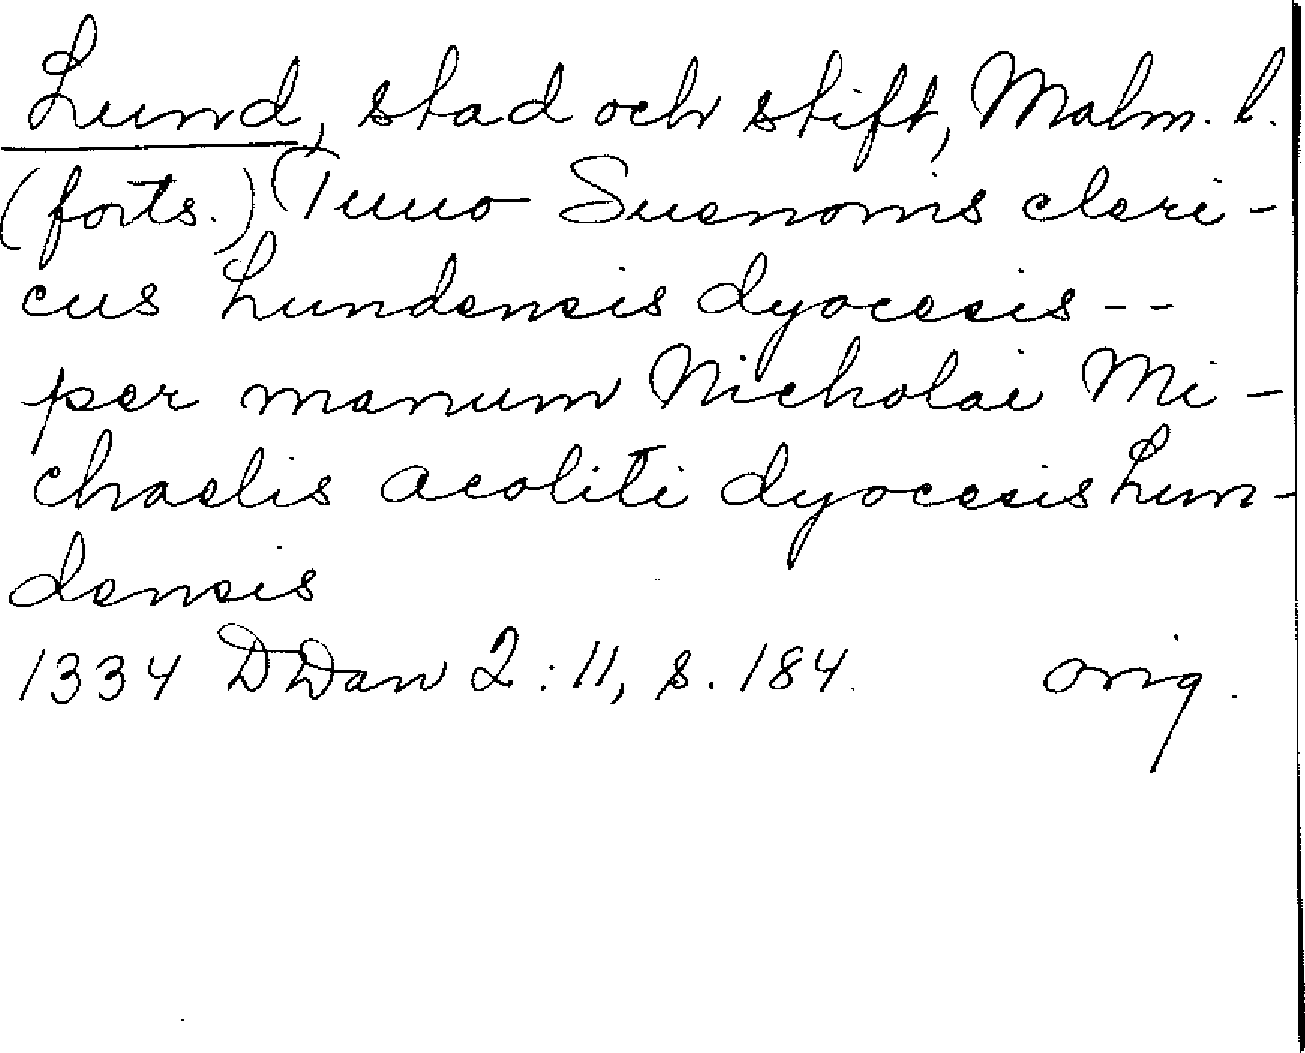 Lund, stad och stift, Malm. l.
(forts.) Tuuo Suenonis cleri-
cus Lundensis dyocesis --
per manum Nicholai Mi-
chaelis acoliti dyocesis Lun-
densis
1334 DDan 2:11, s. 184. orig.